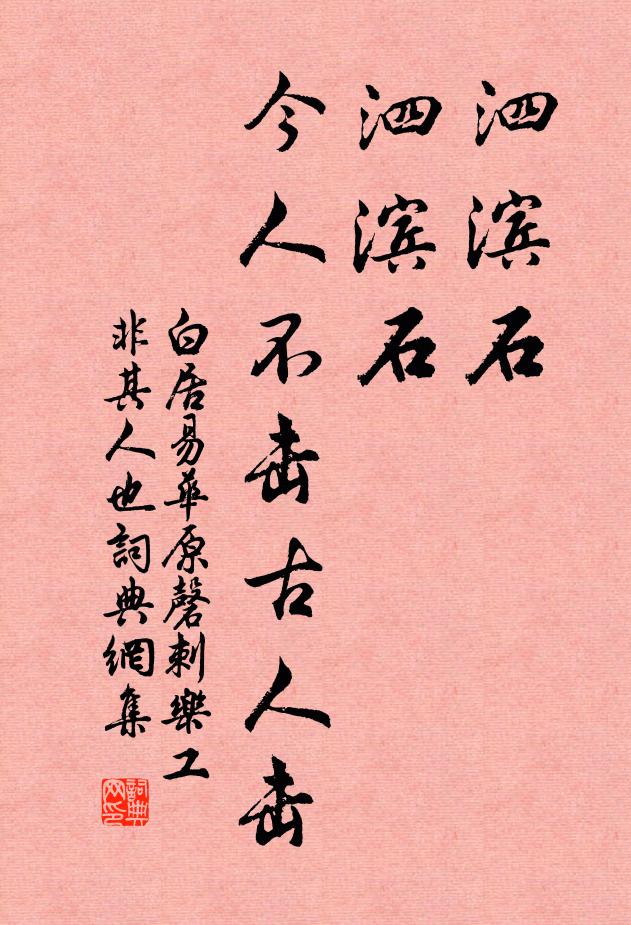 泗滨石
泗滨石
今人不击古人击
白居易華原磬刺樂工
非其人也詞典網集
詞典
网印